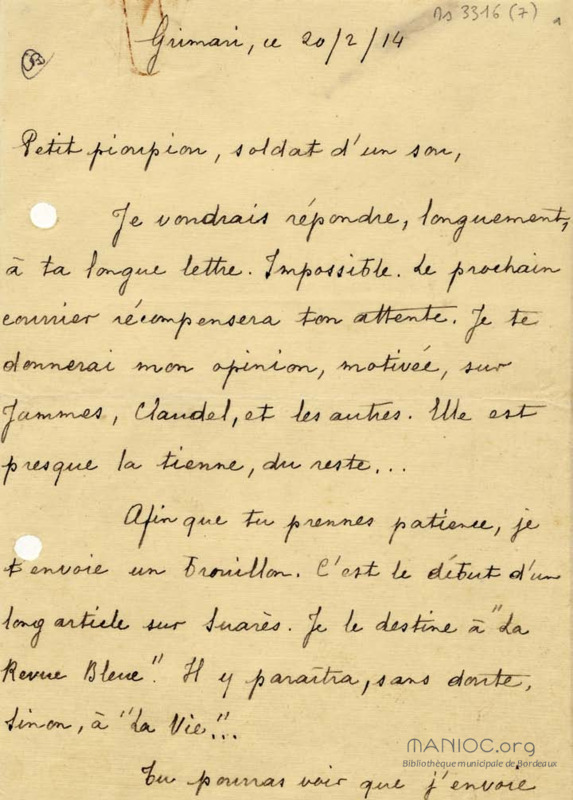 Ms 3316 (7)
Grimari, ce 20/2/14
Petit pioupiou, soldat d'un sou,
Je voudrais répondre, longuement,
à ta longue lettre. Impossible. Le prochain
courrier récompensera ton attente. Je te
donnerai mon opinion, motivée, sur
Jammes, Claudel, et les autres. Elle est
presque la tienne, du reste...
Afin que tu prennes patience, je
t'envoie un brouillon. C'est le début d'un
long article sur Suarès. Je le destine à "La
Revue Bleue". Il y paraîtra, sans doute,
sinon, à "La Vie"...
MANIOC.org
Bibliothèque municipale de Bordeaux
Tu pourras voir que j'envoie